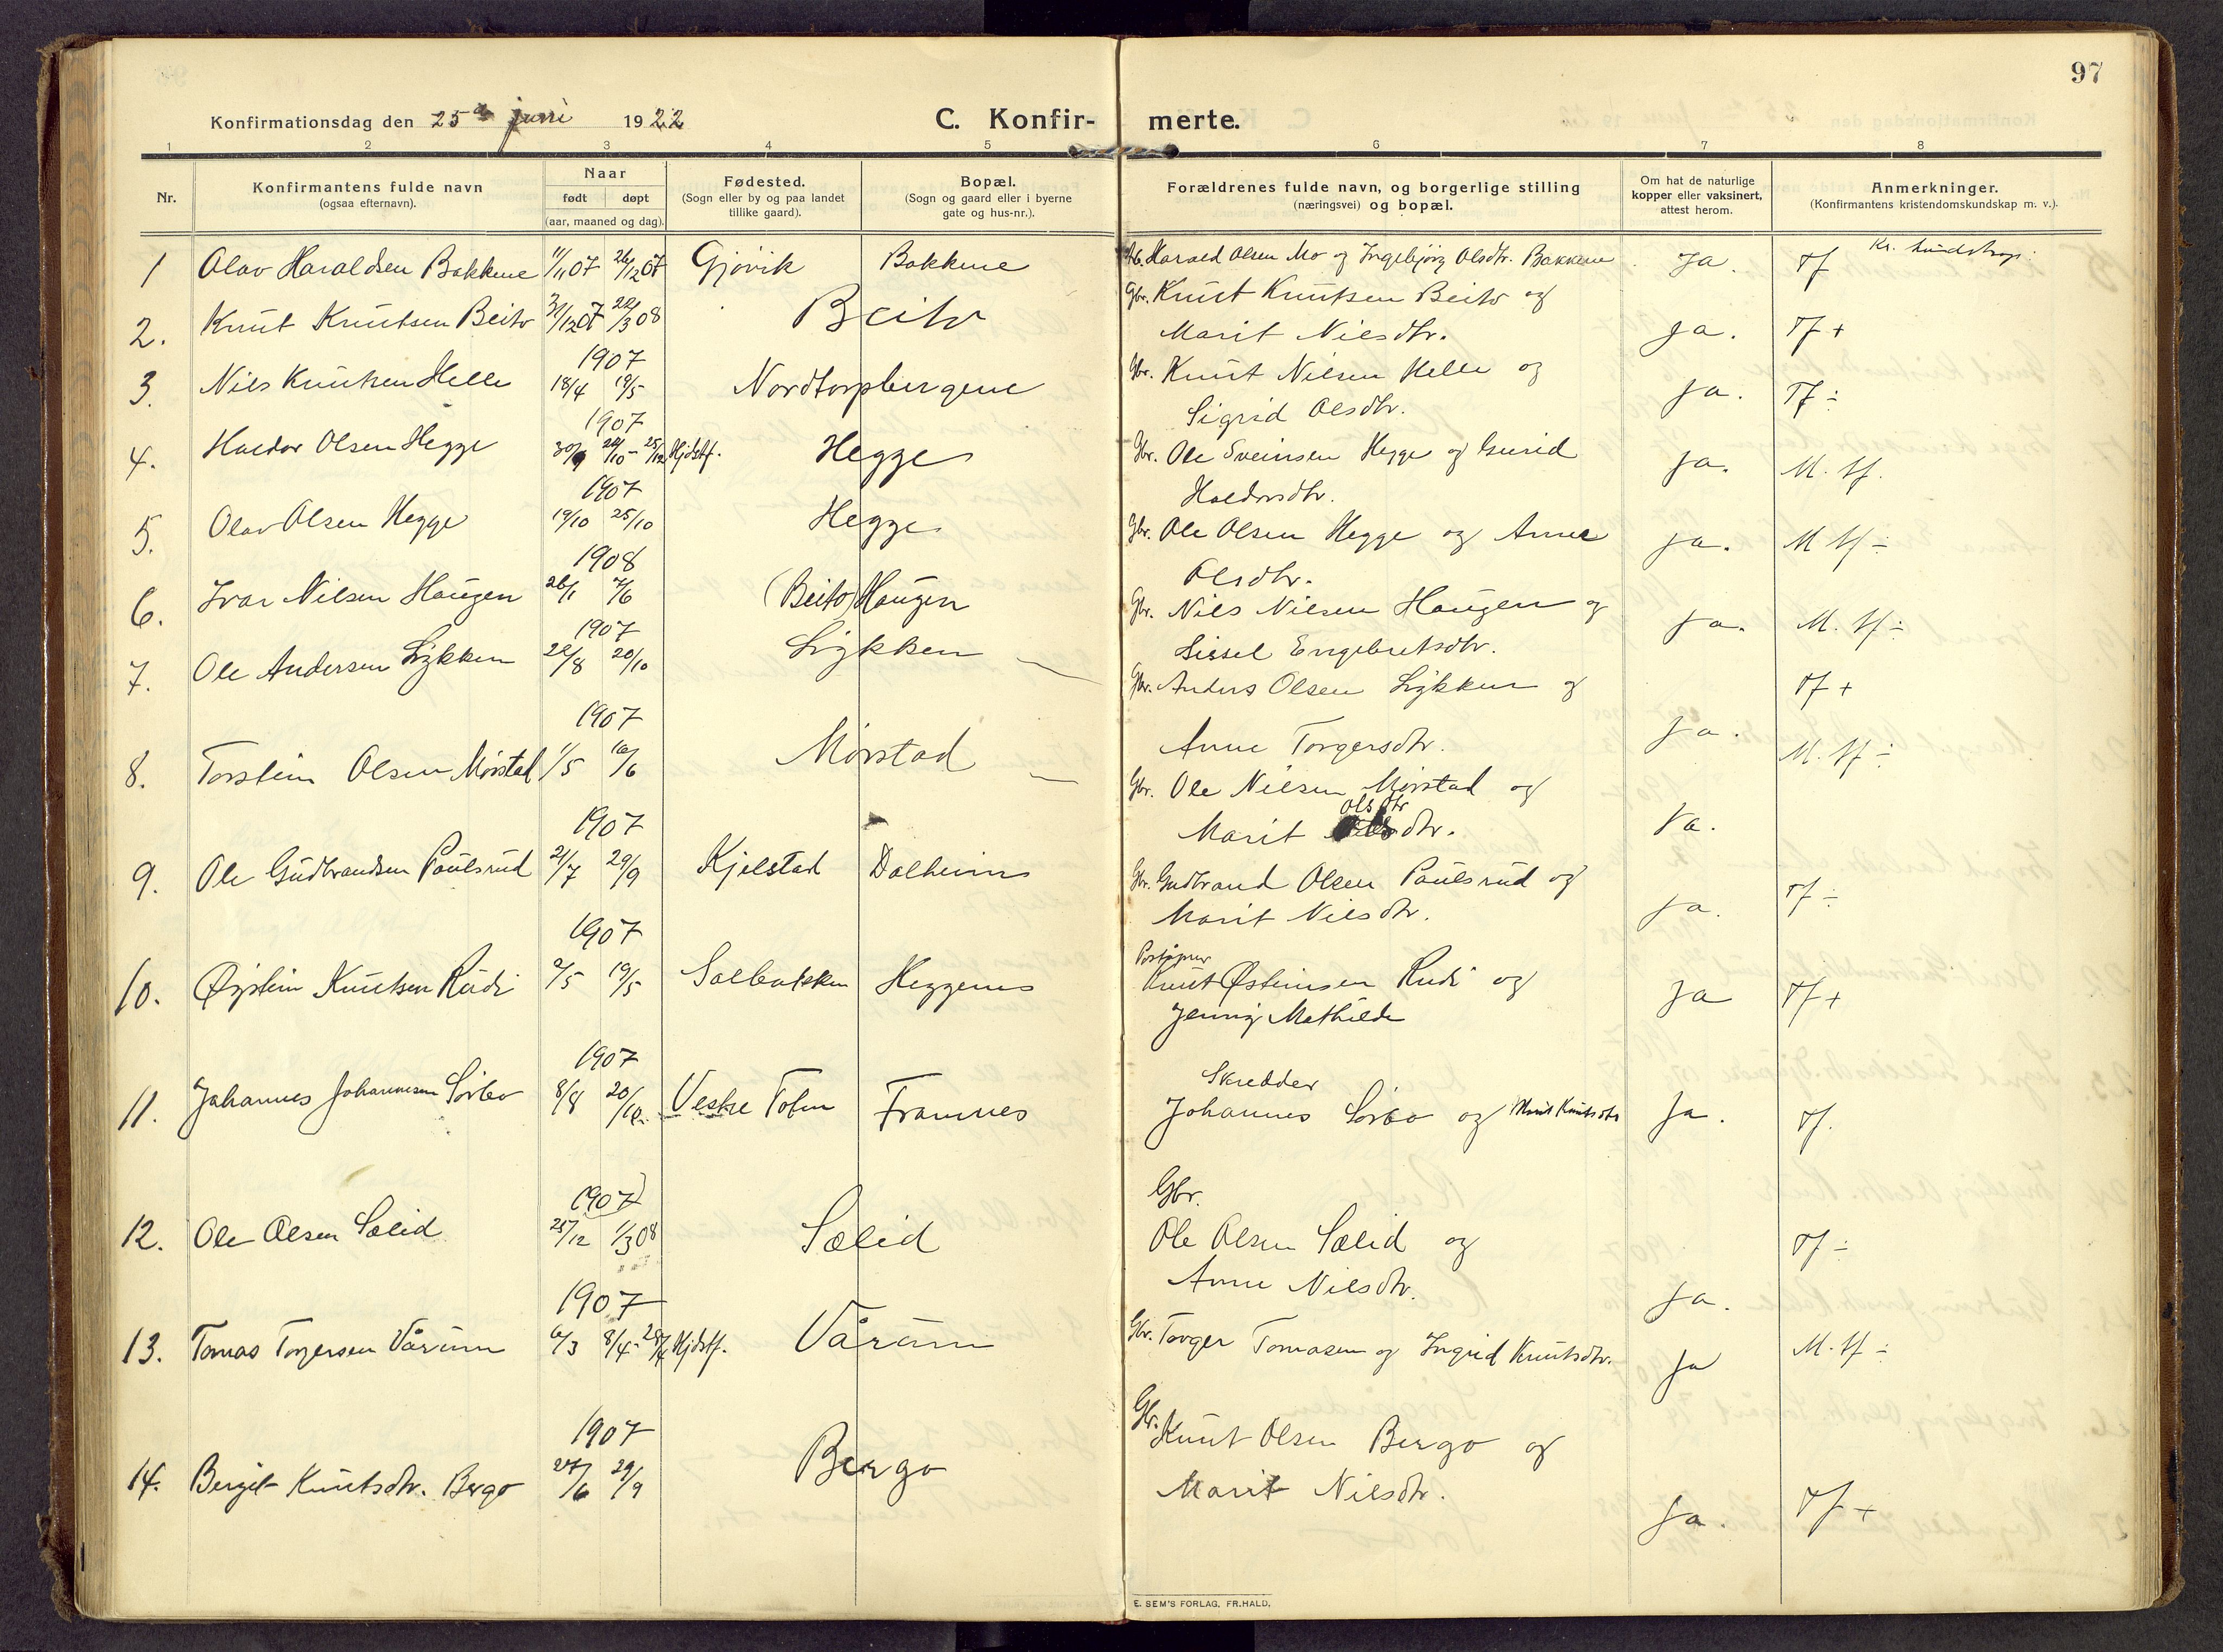 97
Konfirmationsdag den 25de juni 1922
C. Konfir- merte.
1 2 3 4 5 6 7 8
Nr.
Konfirmantens fulde navn
(ogsaa efternavn).
Naar
født døpt
(aar, maaned og dag).
Fødested.
(Sogn eller by og paa landet
tillike gaard).
Bopæl.
(Sogn og gaard eller i byerne
gate og hus-nr.).
Forældrenes fulde navn, og borgerlige stilling
(næringsvei) og bopæl.
Om hat de naturlige
kopper eller vaksinert,
attest herom.
Anmerkninger.
(Konfirmantens kristendomskundskap m. v.).
Kr. kundskap:
1 Olav Haraldsen Bakkene 11/11 07 26/12 07 Gjøvik Bakkene Harald Olsen Mo og Ingebjørg Olsdtr. Bakkene Ja. Tf
2. Knut Knutsen Beito 31/12 07 22/3 08 Beito Gbr. Knut Knutsen Beito og
Marit Nilsdtr. Ja. Tf +
1907
3. Nils Knutsen Helle 18/4 19/5 Nordtorpbergene Gbr. Knut Nilsen Helle og
Sigrid Olsdtr. Ja. Tf ÷
1907
4. Haldor Olsen Hegge 30/9 20/10 - 25/12 Hjdøpt. Hegge Gbr. Ole Sveinsen Hegge og Gurid
Haldorsdtr. Ja. M. tf.
1907
5. Olav Olsen Hegge 19/10 25/10 Hegge Gbr. Ole Olsen Hegge og Anne
Olsdtr. Ja. M tf ÷
1908
6. Ivar Nilsen Haugen 26/1 7/6 (Beito) Haugen Gbr. Nils Nilsen Haugen og
Sissel Engebretsdtr. Ja. M. tf ÷
1907
7. Ole Andersen Lykken 22/8 20/10 Lykken Gbr. Anders Olsen Lykken og
Anne Torgersdtr. Ja. Tf +
1907
8. Torstein Olsen Mørstad 1/5 16/6 Mørstad Gbr. Ole Nilsen Mørstad og
Olsdtr
Marit dtr. Ja. M. tf ÷
1907
9. Ole Gudbrandsen Paulsrud 21/7 29/9 Kjelstad Dalheim Gbr. Gudbrand Olsen Paulsrud og
Marit Nilsdtr. Ja. Tf ÷
1907
10. Øystein Knutsen Rudi 2/5 19/5 Solbakken Heggenes Poståpner
Knut Østeinsen Rudi og
Jenny Mathilde Ja Tf +
1907
11. Johannes Johannesen Sørbø 8/8 20/10 Vestre Toten Framnes Skredder
Johannes Sørbø og Marit Knutsdtr Ja. Tf.
1907
12. Ole Olsen Sælid 25/12 1/3 08 Sælid Gbr.
Ole Olsen Sælid og
Anne Nilsdtr. Ja. Tf ÷
1907
13. Tomas Torgersen Vårum 6/3 8/4 - 28/4 Hjdøpt. Vårum Gbr. Torger Tomasen og Ingrid Knutsdtr. Ja M. tf ÷
1907
14. Bergit Knutsdtr. Bergo 27/6 29/9 Bergo Gbr. Knut Olsen Bergo og
Marit Nilsdtr. Ja. Tf +
E. SEM'S FORLAG, FR.HALD.